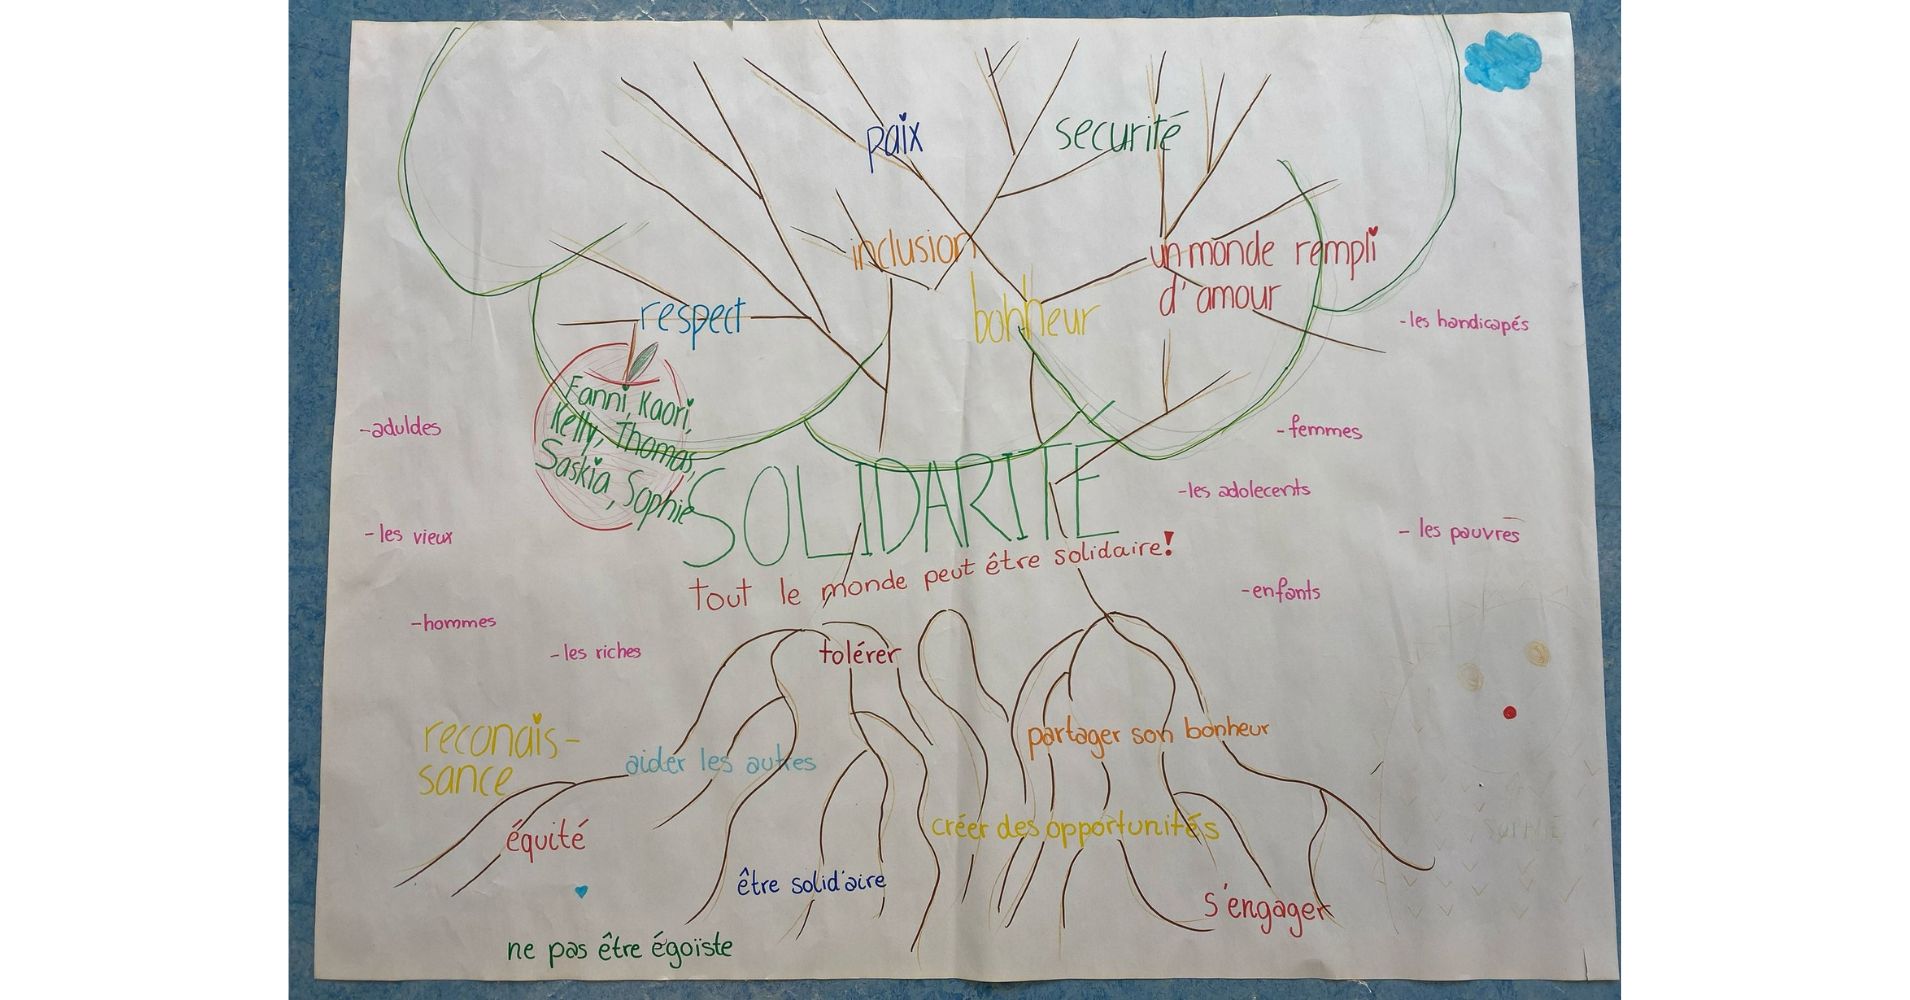 paix
securité
inclusion
un monde rempli
d'amour
respect
bonheur
-les handicapés
Fanni, Kaori,
Kelly, Thomas,
Saskia, Sophie
-aduldes
-femmes
SOLIDARITÉ
-les adolecents
-les vieux
- les pauvres
tout le monde peut être solidaire!
-enfants
-hommes
-les riches
tolérer
reconais-
sance
aider les autres
partager son bonheur
équité
créer des opportunités
être solid'aire
s'engager
ne pas être égoïste